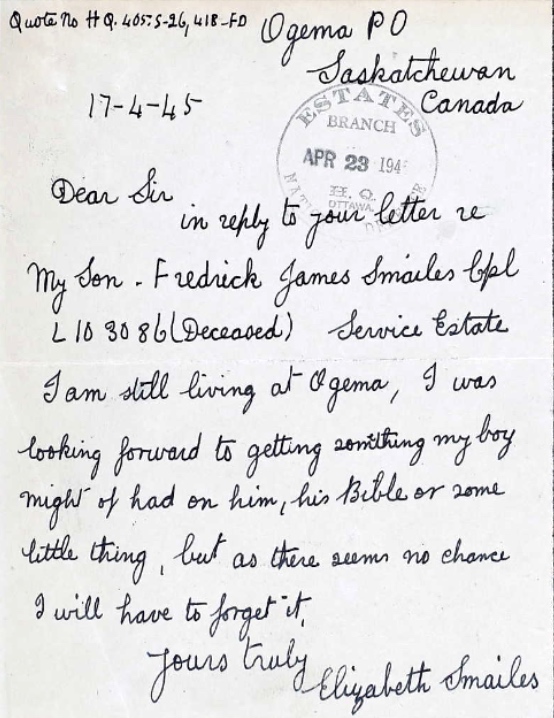 Quote No H Q. 405:S-26,418-FD
Ogema P O
Saskatchewan
Canada
17-4-45
ESTATES
BRANCH
APR 23 194
H. Q.
OTTAWA.
Dear Sir
in reply to your letter re
My Son - Fredrick James Smailes Cpl
L 10 30 86 (Deceased) Service Estate
I am still living at Ogema, I was
looking forward to getting something my boy
might of had on him, his Bible or some
little thing, but as there seems no chance
I will have to forget it,
Yours truly
Elizabeth Smailes